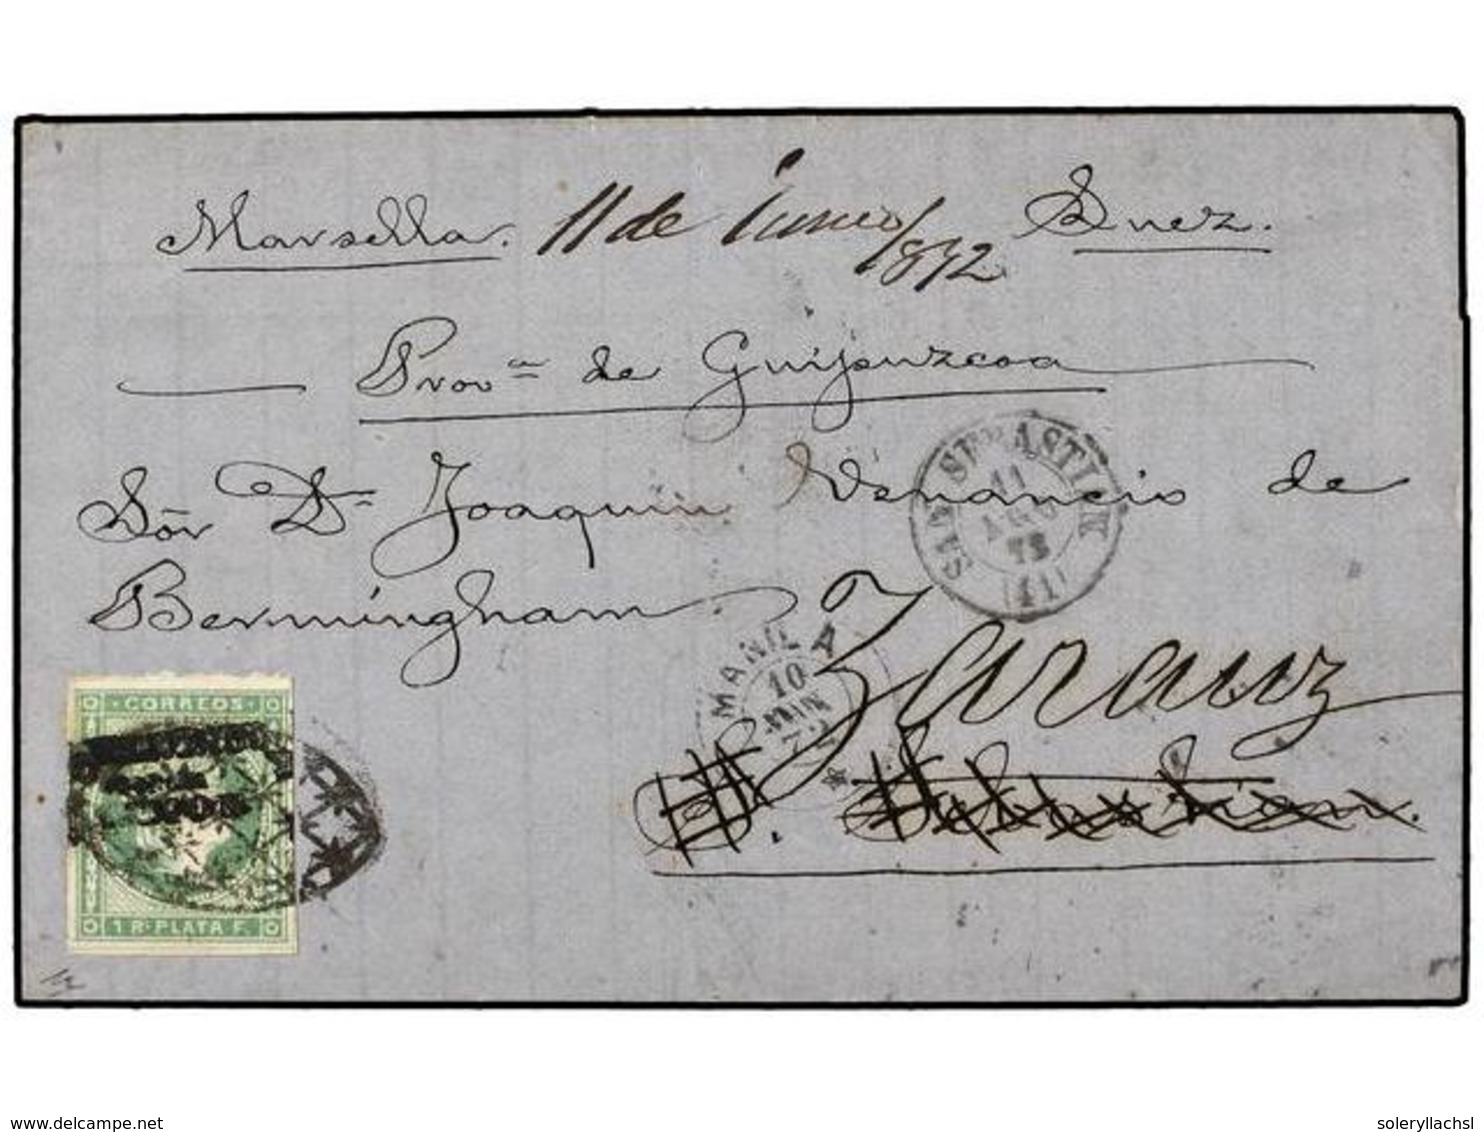 Marsella. 11 de Junio/872 Suez.
Prov.ª de Guipuzcoa
Sōr Dn Joaquin Venancio de
Bermingham.
SAN SEBASTIAN
11
AGO
72
(11)
MANILA
10
JUN
72
Zarauz
S. Sebastian.
CORREOS
1 Rl PLATA F.
www.delcampe.net
soleryllachsl